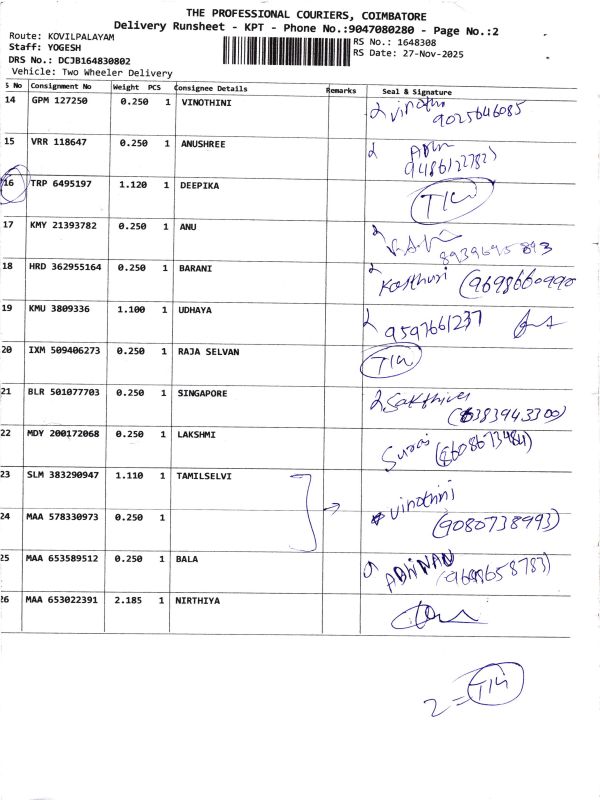 THE PROFESSIONAL COURIERS, COIMBATORE
Delivery Runsheet - KPT - Phone No.:9047080280 - Page No.:2
Route: KOVILPALAYAM
RS No.: 1648308
Staff: YOGESH
RS Date: 27-Nov-2025
DRS No.: DCJB164830802
Vehicle: Two Wheeler Delivery
S No Consignment No Weight PCS Consignee Details Remarks Seal & Signature
14 GPM 127250 0.250 1 VINOTHINI Vinothi
9025646085
15 VRR 118647 0.250 1 ANUSHREE
16 TRP 6495197 1.120 1 DEEPIKA
17 KMY 21393782 0.250 1 ANU
8939695893
18 HRD 362955164 0.250 1 BARANI Kasthuri (9698660990
19 KMU 3809336 1.100 1 UDHAYA 9597661237
20 IXM 509406273 0.250 1 RAJA SELVAN
21 BLR 501077703 0.250 1 SINGAPORE Sakthivel
(6383943300)
22 MDY 200172068 0.250 1 LAKSHMI
23 SLM 383290947 1.110 1 TAMILSELVI Vinothini
24 MAA 578330973 0.250 1 (9080738993)
25 MAA 653589512 0.250 1 BALA
26 MAA 653022391 2.185 1 NIRTHIYA
2 =